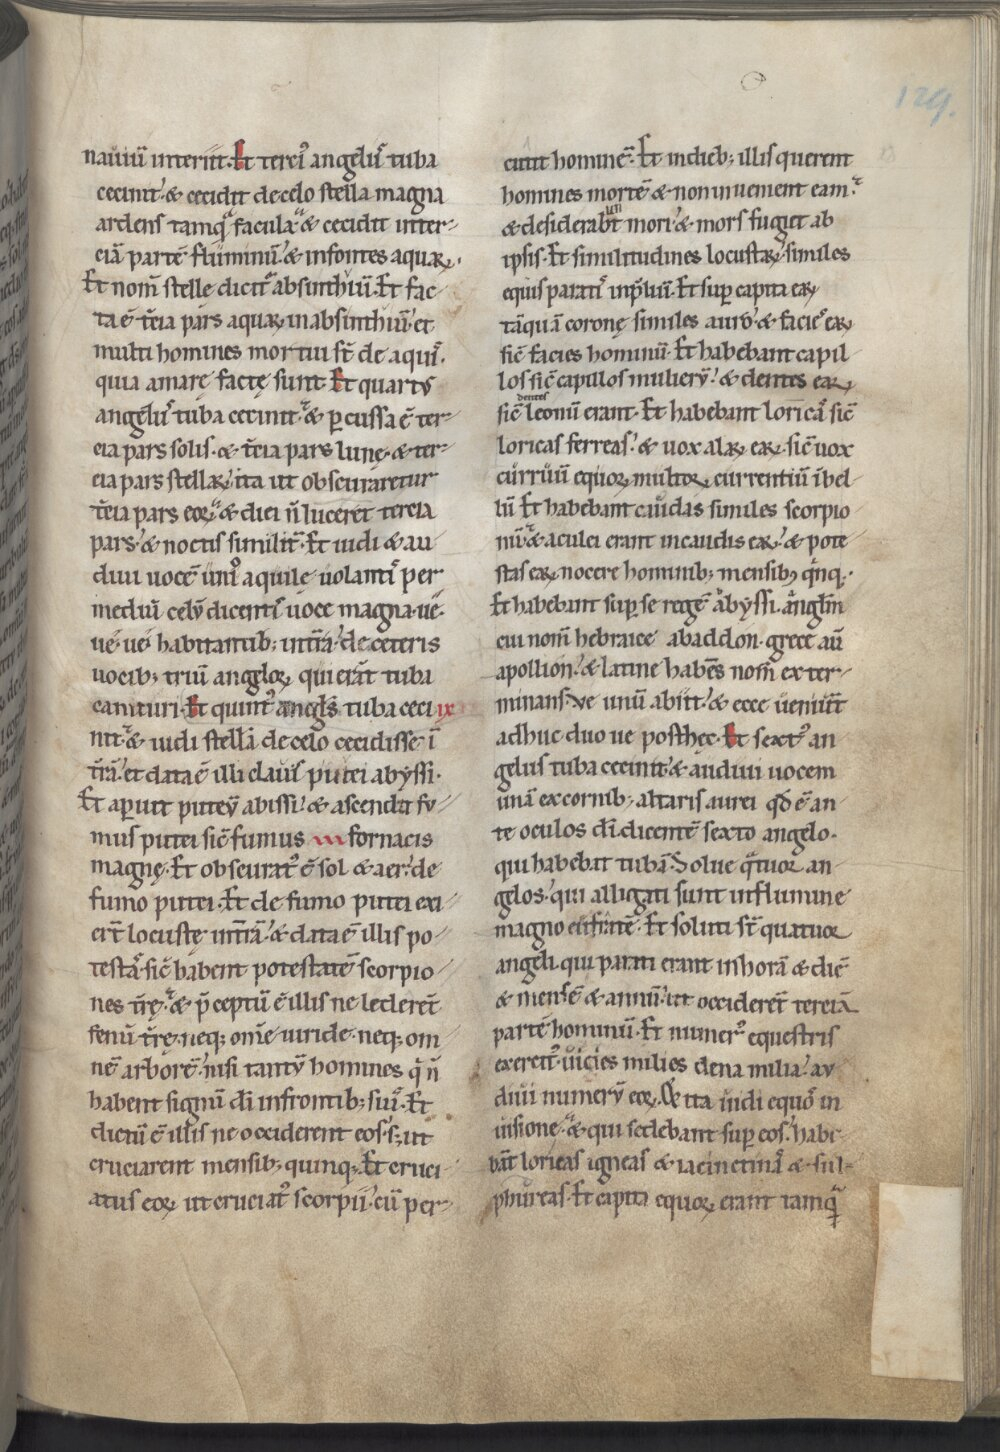 129.
nauiũ interiit. Et terci᷒ angelus tuba
cecinit. & cecidit de celo stella magna
ardens tamq̃ facula. & cecidit in ter-
ciã partẽ fluminũ. & in fontes aquaꝝ.
Et nom̃ stelle dicit᷒ absinthiũ. Et fac
ta ẽ t̃cia pars aquaꝝ in absinthiũ. et
multi homines mortui st̃ de aquis.
quia amarę factę sunt. Et quartus
angelus tuba cecinit. & ꝑcussa ẽ ter-
cia pars solis. & t̃cia pars lunę. & ter-
cia pars stellaꝝ. ita ut obscuraretur
t̃cia pars eoꝝ. & diei ñ luceret tercia
pars. & noctis similit̃. Et uidi & au
diui uocẽ uni᷒ aquilę uolantis per
mediũ celũ dicentis uoce magna. uę.
uę. uę habitantib; in t̃ra. de ceteris
uocib; triũ angeloꝝ qui erãt tuba
canituri. Et quint᷒ angl̃s tuba ceci ix
nit. & uidi stellã de celo cecidisse ĩ
t̃rã. et data ẽ illi clauis putei abyssi.
Et aꝑuit puteũ abissi. & ascendit fu
mus putei sic̃ fumus fornacis
magnę. Et obscurat᷒ ẽ sol & aer. de
fumo putei. Et de fumo putei exi
er̃t locustę in t̃rã. & data ẽ illis po
testas. sic̃ habent potestatẽ scorpio
nes t̃rę. & p̃ceptũ ẽ illis ne lederet̃
fenũ t̃rę. neq; om̃e uiride. neq; om
nẽ arborẽ. nisi tantũ homines q̃ ñ
habent signũ dĩ in frontib; suis. Et
dictũ ẽ illis ne occiderent eos. s; ut
cruciarent mensib; quinq;. Et cruci
atus eoꝝ ut cruciat᷒ scorpii. cũ per-
cutit hominẽ. Et in dieb; illis querent
homines mortẽ & non inuenient eam.
& desiderabt̃ mori. & mors fugiet ab
ipsis. Et similitudines locustaꝝ. similes
equis paratis in p̃liũ. Et suꝑ capita eaꝝ
tãquã coronę similes auro. & facies eaꝝ
sic̃ facies hominũ. Et habebant capil
los sic̃ capillos mulierũ. & dentes eaꝝ
sic̃ dentes leonũ erant. Et habebant loricas sic̃
loricas ferreas. & uox alaꝝ eaꝝ. sic̃ uox
curruũ equoꝝ multoꝝ currentiũ ĩ bel
lũ. Et habebant caudas similes scorpio
nũ. & aculei erant in caudis eaꝝ. & pote
stas eaꝝ nocere hominib; mensib; q̃nq;.
Et habebant suꝑ se regẽ abyssi. angl̃m
cui nom̃ hebraice abaddon. grece aũ
apollion. & latine habẽs nom̃ exter-
minans. Ve unũ abiit. & ecce ueniũt
adhuc duo ue post hęc. Et sext᷒ an
gelus tuba cecinit. & audiui uocem
unã ex cornib; altaris aurei qđ ẽ an
te oculos dĩ. dicentẽ sexto angelo.
qui habebat tubã. Solue q̃tuor an
gelos. qui alligati sunt in flumine
magno eufratẽ. Et soluti st̃ quatuor
angeli. qui parati erant in horã & diẽ
& mensẽ & annũ. ut occideret̃ terciã
partẽ hominũ. Et numer᷒ equestris
exercit᷒. uicies milies dena milia. au
diui numerũ eoꝝ. & ita uidi equos in
uisione. & qui sedebant suꝑ eos. habe-
bãt loricas igneas & iacinctinas & sul-
phureas. Et capita equoꝝ erant tamq̃